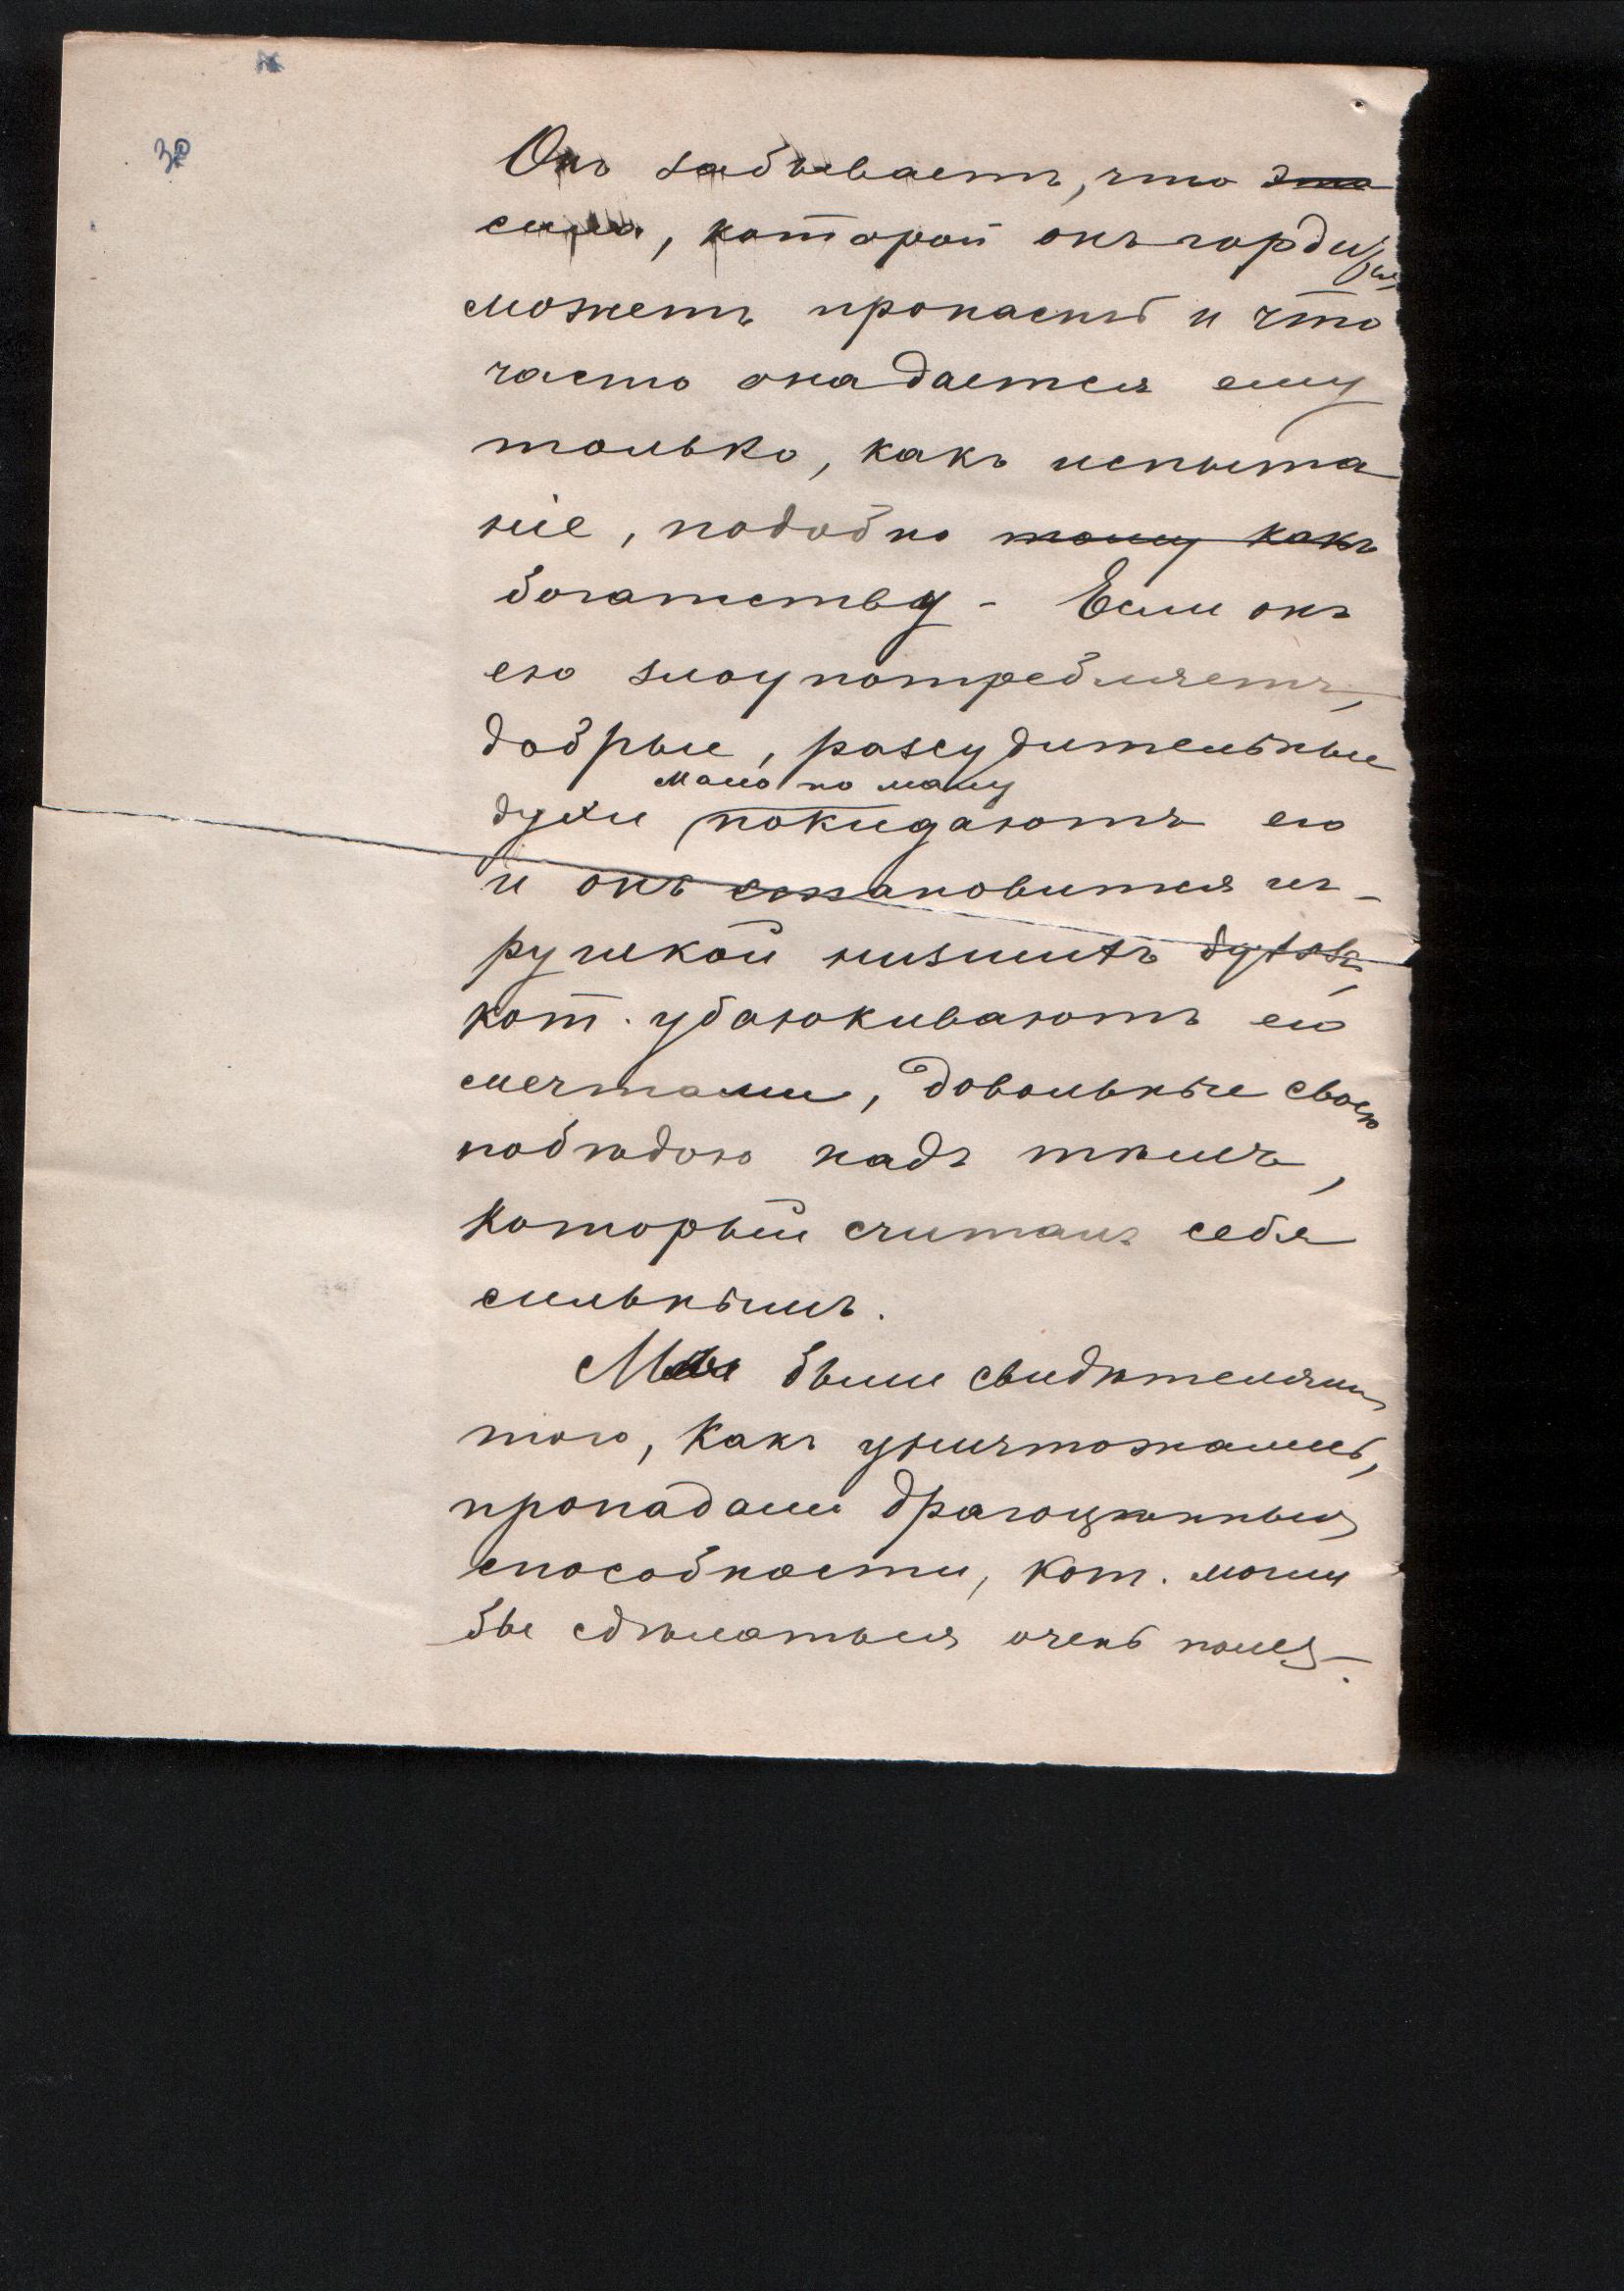 30
Онъ забываетъ, что эта
сила, которой онъ гордится
можетъ пропасть и что
часто она дается ему
только, какъ испыта
ніе, подобно тому какъ
богатству - Если онъ
ею злоупотребляетъ,
добрые, разсудительные
мало по малу
духи покидаютъ его
и онъ становится иг-
рушкой низшихъ духовъ,
кот. убаюкиваютъ его
мечтами, довольные своею
побѣдою надъ тѣмъ,
который считалъ себя
сильнымъ.
Мы были свидѣтелями
того, какъ уничтожались,
пропадали драгоцѣнныя
способности, кот. могли
бы сдѣлаться очень полез-